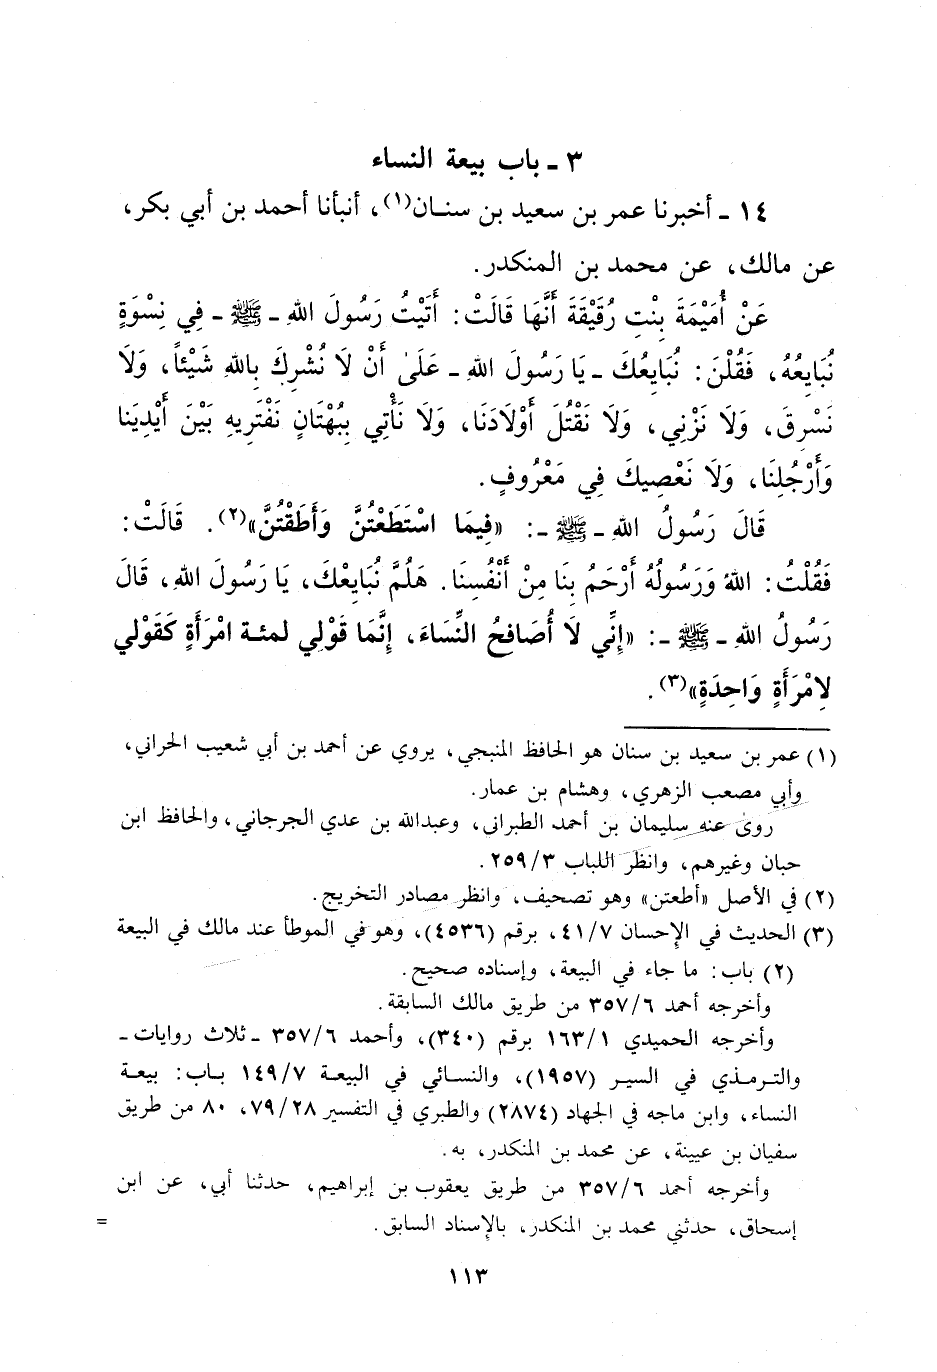 ٣ ـ باب بيعة النساء
١٤ ـ أخبرنا عمر بن سعيد بن سنـان(١)، أنبأنا أحمد بن أبي بكر،
عن مالك، عن محمد بن المنكدر.
عَنْ أُمَيْمَةَ بِنْتِ رُقَيْقَةَ أَنَّهَا قَالَتْ: أَتَيْتُ رَسُولَ اللهِ ـ ﷺ ـ فِي نِسْوَةٍ
نُبَايِعُهُ، فَقُلْنَ: نُبَايِعُكَ ـ يَا رَسُولَ اللهِ ـ عَلَىٰ أَنْ لَا نُشْرِكَ بِاللهِ شَيْئاً، وَلَا
نَسْرِقَ، وَلَا نَزْنِي، وَلَا نَقْتُلَ أَوْلَادَنَا، وَلَا نَأْتِي بِبُهْتَانٍ نَفْتَرِيهِ بَيْنَ أَيْدِينَا
وَأَرْجُلِنَا، وَلَا نَعْصِيكَ فِي مَعْرُوفٍ.
قَالَ رَسُولُ اللهِ ـ ﷺ ـ: «فِيمَا اسْتَطَعْتُنَّ وَأَطَقْتُنَّ»(٢). قَالَتْ:
فَقُلْتُ: اللهُ وَرَسُولُهُ أَرْحَمُ بِنَا مِنْ أَنْفُسِنَا. هَلُمَّ نُبَايِعْكَ، يَا رَسُولَ اللهِ، قَالَ
رَسُولُ اللهِ ـ ﷺ ـ: «إِنِّي لَا أُصَافِحُ النِّسَاءَ، إِنَّمَا قَوْلِي لمئـة امْرَأَةٍ كَقَوْلي
لِامْرَأَةٍ وَاحِدَةٍ»(٣).
(١) عمر بن سعيد بن سنان هو الحافظ المنبجي، يروي عن أحمد بن أبي شعيب الحراني،
وأبي مصعب الزهري، وهشام بن عمار.
روى عنه سليمان بن أحمد الطبراني، وعبدالله بن عدي الجرجاني، والحافظ ابن
حبان وغيرهم، وانظر اللباب ٢٥٩/٣.
(٢) في الأصل «أطعتن» وهو تصحيف، وانظر مصادر التخريج.
(٣) الحديث في الإحسان ٤١/٧، برقم (٤٥٣٦)، وهو في الموطأ عند مالك في البيعة
(٢) باب: ما جاء في البيعة، وإسناده صحيح.
وأخرجه أحمد ٣٥٧/٦ من طريق مالك السابقة.
وأخرجه الحميدي ١٦٣/١ برقم (٣٤٠)، وأحمد ٣٥٧/٦ ـ ثلاث روايات ـ
والتـرمـذي في السيـر (١٩٥٧)، والنسـائي في البيعـة ١٤٩/٧ بـاب: بيعـة
النساء، وابن ماجه في الجهاد (٢٨٧٤) والطبري في التفسير ٧٩/٢٨، ٨٠ من طريق
سفيان بن عيينة، عن محمد بن المنكدر، به.
وأخرجه أحمد ٣٥٧/٦ من طريق يعقوب بن إبراهيم، حدثنا أبي، عن ابن
إسحاق، حدثني محمد بن المنكدر، بالإسناد السابق. =
١١٣